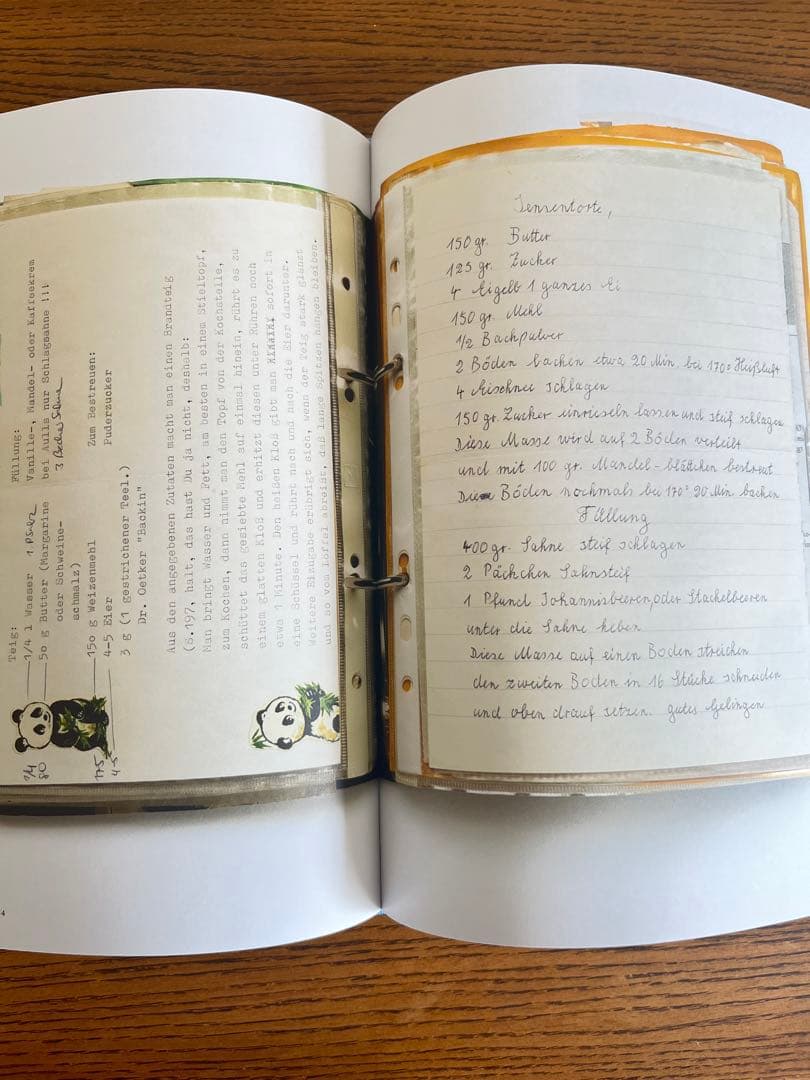 Teig:
1/4 l Wasser 1 P Salz
50 g Butter (Margarine
oder Schweine-
schmalz)
150 g Weizenmehl
4-5 Eier
3 g (1 gestrichener Teel.)
Dr. Oetker "Backin"
Füllung:
Vanille-, Mandel- oder Kaffeekrem
bei Aulls nur Schlagsahne !!!
3 Sahne
Zum Bestreuen:
Puderzucker
Aus den angegebenen Zutaten macht man einen Brandteig
(S.197, halt, das hast Du ja nicht, deshalb:
Man bringt Wasser und Fett, am besten in einem Stieltopf,
zum Kochen, dann nimmt man den Topf von der Kochstelle,
schüttet das gesiebte Mehl auf einmal hinein, rührt es zu
einem glatten Kloß und erhitzt diesen unter Rühren noch
etwa 1 Minute. Den heißen Kloß gibt man sofort in
eine Schüssel und rührt nach und nach die Eier darunter.
Weitere Eizugabe erübrigt sich, wenn der Teig stark glänzt
und so vom Löffel abreißt, daß lange Spitzen hängen bleiben.
1/4
80
175
4-5
4
Sensentorte,
150 gr. Butter
125 gr. Zucker
4 Eigelb 1 ganzes Ei
150 gr. Mehl
1/2 Bachpulver
2 Böden backen etwa 20 Min. bei 170° Heißluft
4 Eischnei schlagen
150 gr. Zucker einrieseln lassen und steif schlagen
Diese Masse wird auf 2 Böden verteilt
und mit 100 gr. Mandel-blättchen bestreut
Die Böden nochmals bei 170° 20 Min backen
Füllung
400 gr. Sahne steif schlagen
2 Päckchen Sahnsteif
1 Pfund Johannisbeeren, oder Stachelbeeren
unter die Sahne heben
Diese Masse auf einen Boden streichen
den zweiten Boden in 16 Stücke schneiden
und oben drauf setzen. gutes Gelingen